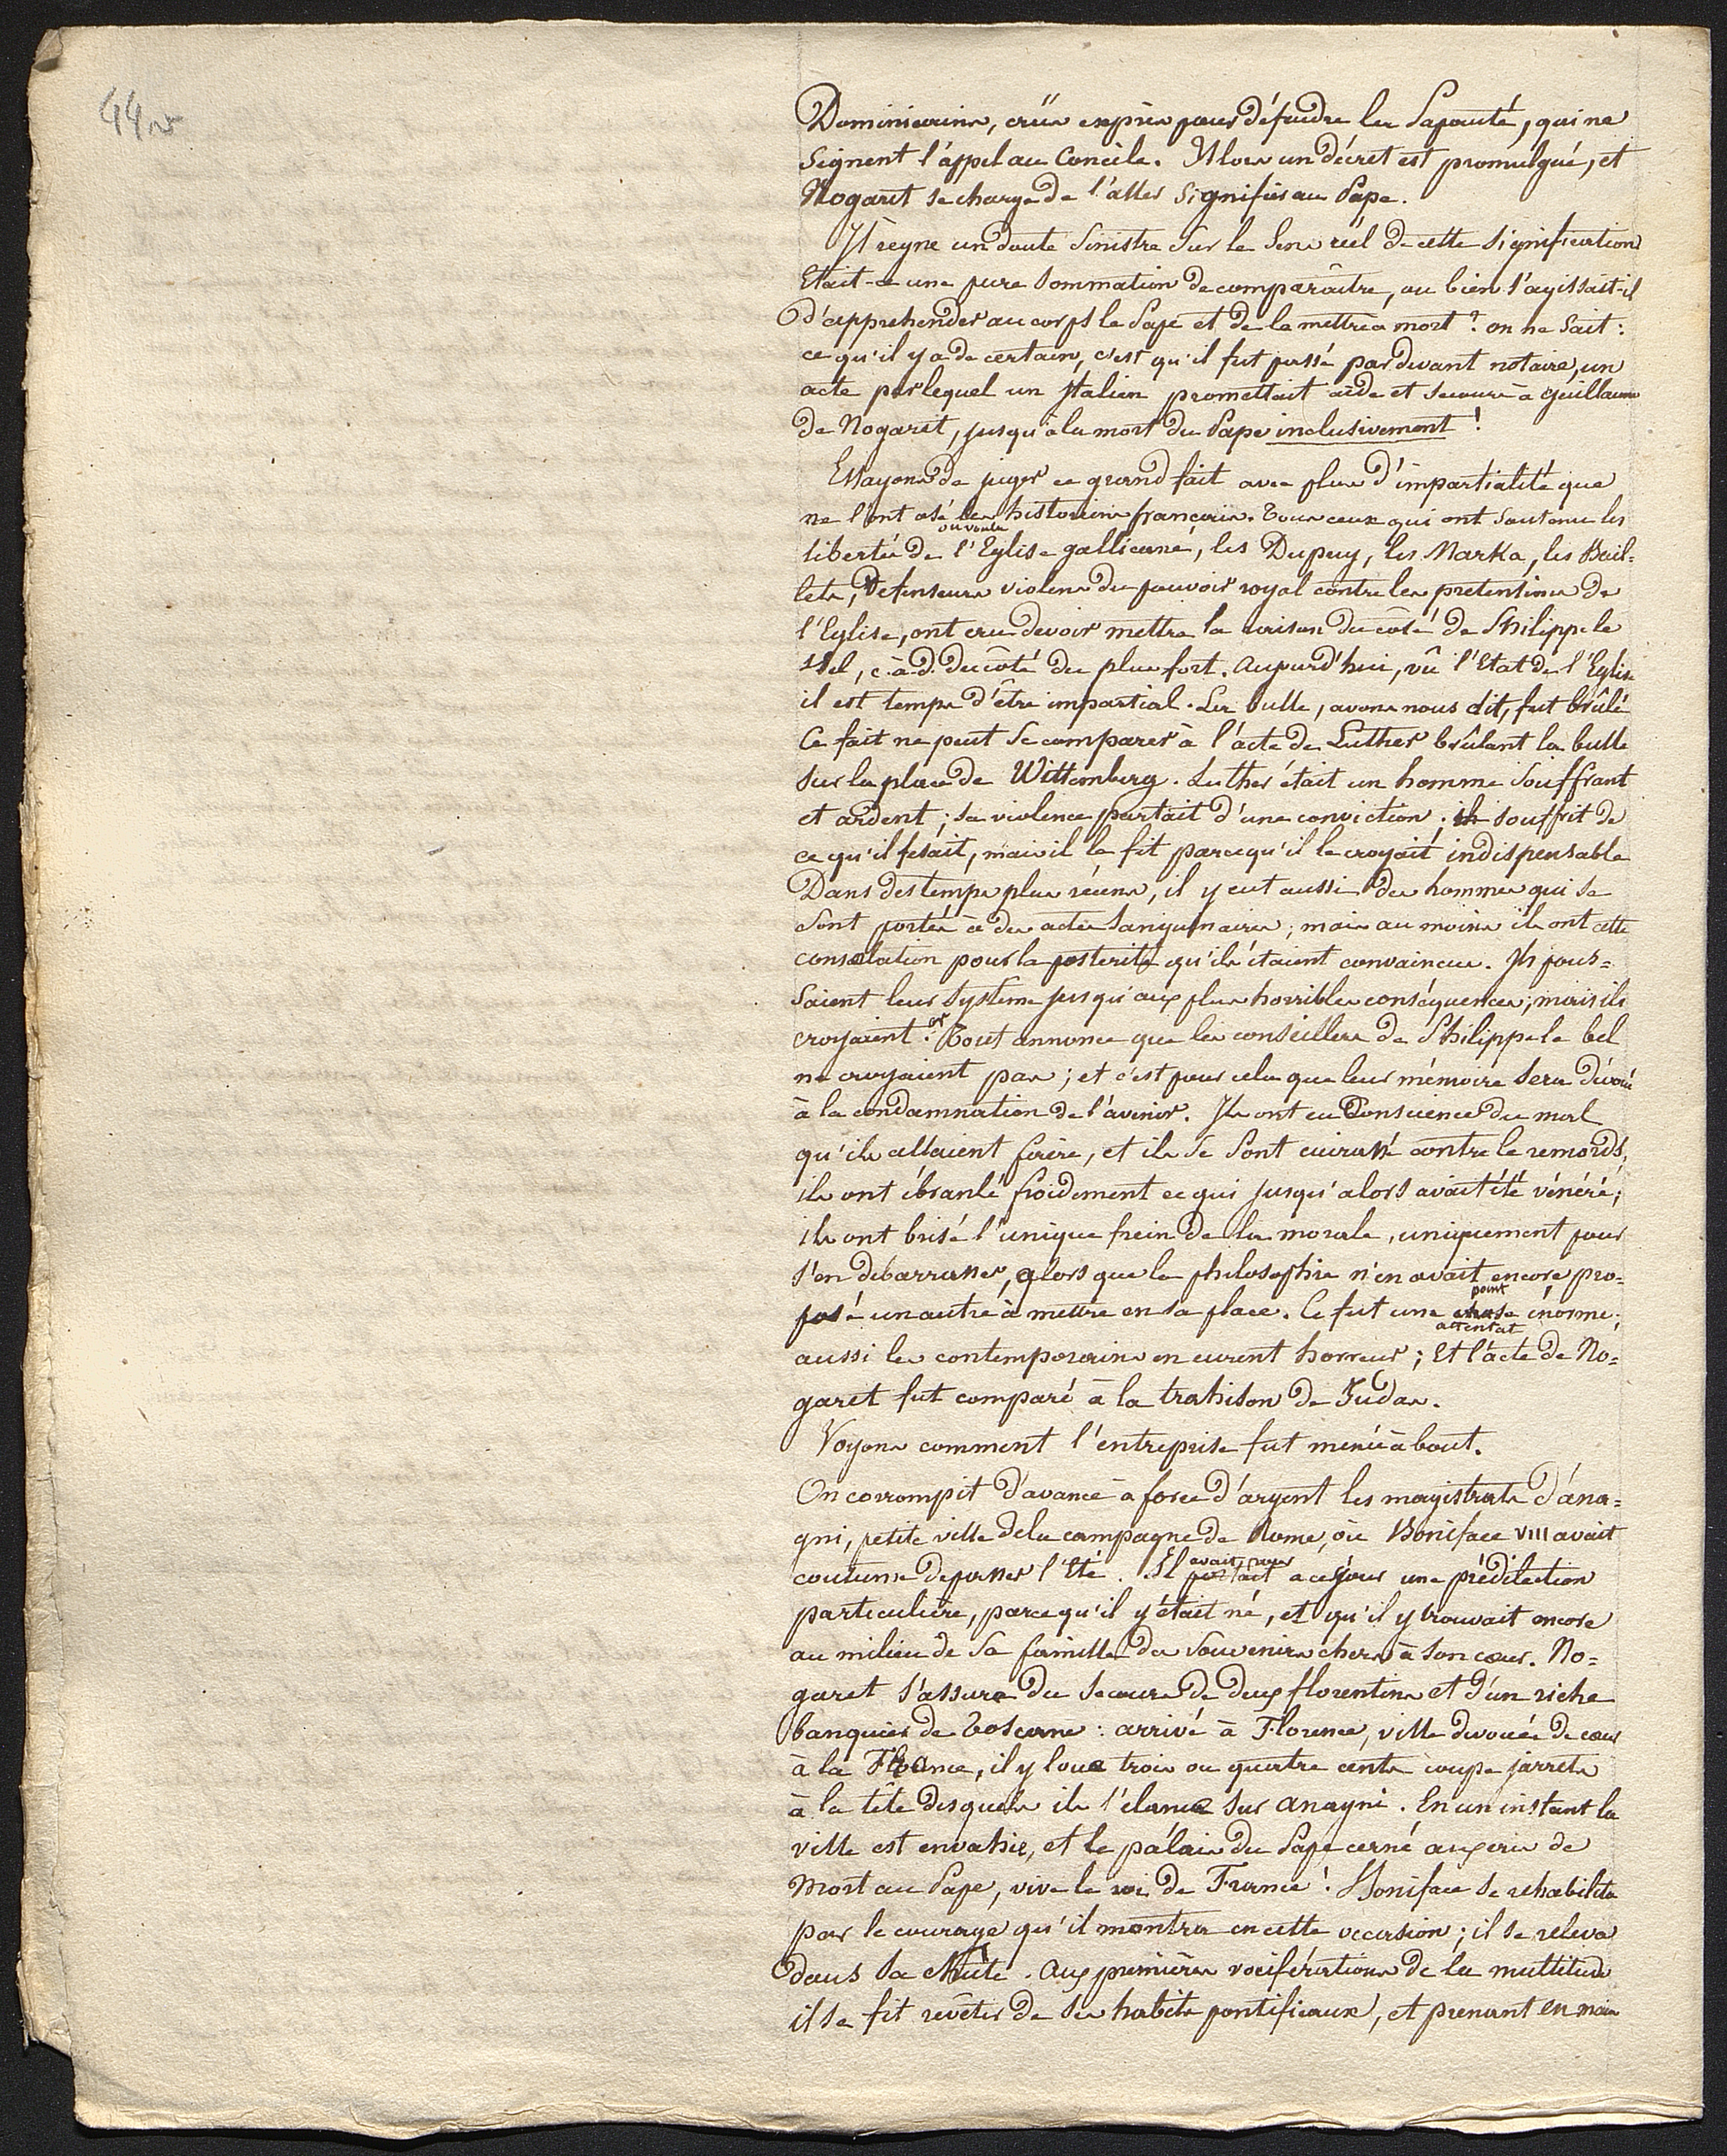 44 r
Dominicains, créés exprès pour défendre la Papauté, qui ne
signent l'appel au Concile. Alors un décret est promulgué, et
Nogaret se charge de l'aller signifier au Pape.
Il règne un doute sinistre sur le sens réel de cette signification
Etait-ce une pure sommation de comparaître, ou bien s'agissait-il
d'apprehender au corps le Pape et de le mettre à mort ? on ne sait :
ce qu'il y a de certain, c'est qu'il fut passé par devant notaire, un
acte par lequel un Italien promettait aide et secours à Guillaume
de Nogaret, jusqu'à la mort du Pape inclusivement !
Essayons de juger ce grand fait avec plus d'impartialité que
ne l'ont osé les historiens français. Tous ceux qui ont soutenu les
ou voulu
libertés de l'Eglise gallicane, les Dupuy, les Marka, les Bail=
lets, défenseurs violens du pouvoir royal contre les pretentions de
l'Eglise, ont cru devoir mettre la raison du côté de Philippe le
Bel, c.à.d. du côté du plus fort. Aujourd'hui, vû l'Etat de l'Eglise
il est temps d'être impartial. La bulle, avons nous dit, fut brûlé
Ce fait ne peut se comparer à l'acte de Luther brûlant la bulle
sur la place de Wittemberg. Luther était un homme souffrant
et ardent ; sa violence partait d'une conviction ; il souffrit de
ce qu'il fesait, mais il le fit parcequ'il le croyait indispensable
Dans des temps plus récens, il y eut aussi des hommes qui se
sont portés à des actes sanguinaires ; mais au moins ils ont cette
consolation pour la posterité qu'ils étaient convaincus. Ils pous=
saient leur système jusqu'aux plus horribles conséquences ; mais ils
croyaient. or Tout annonce que les conseillers de Philippe le bel
ne croyaient pas ; et c'est pour cela que leur mémoire sera dévoué
à la condamnation de l'avenir. Ils ont eu Conscience du mal
qu'ils allaient faire, et ils se sont cuirassé contre le remords,
ils ont ébranlé froidement ce qui jusqu'alors avait été vénéré ;
ils ont brisé l'unique frein de la morale, uniquement pour
s'en débarrasser, alors que la philosophie n'en avait encore pro=
point
posé un autre à mettre en sa place. Ce fut une chose énorme ;
attentat
aussi les contemporains en eurent horreur ; Et l'acte de No=
garet fut comparé à la trahison de Judas.
Voyons comment l'entreprise fut menée à bout.
On corrompit d'avance à force d'argent les magistrats d'ana=
gni, petite ville de la campagne de Rome, où Boniface VIII avait
coutume de passer l'Eté. Il portait à ce séjour une prédilection
avait pour
particulière, parcequ'il y était né, et qu'il y trouvait encore
au milieu de sa famille des souvenirs chers à son cœur. No=
garet s'assura du secours de deux florentins et d'un riche
banquier de Toscane : arrivé à Florence, ville devouée de cœur
à la France, il y loue trois ou quatre cents coupe jarrets
à la tête desquels il s'élance sur anagni. En un instant la
ville est envahie, et le palais du Pape cerné aux cris de
Mort au Pape, vive le roi de France ! Boniface se rehabilita
par le courage qu'il montra en cette occasion ; il se releva
dans sa chûte. Aux premières vociférations de la multitude
il se fit revêtir de ses habits pontificaux, et prenant en main